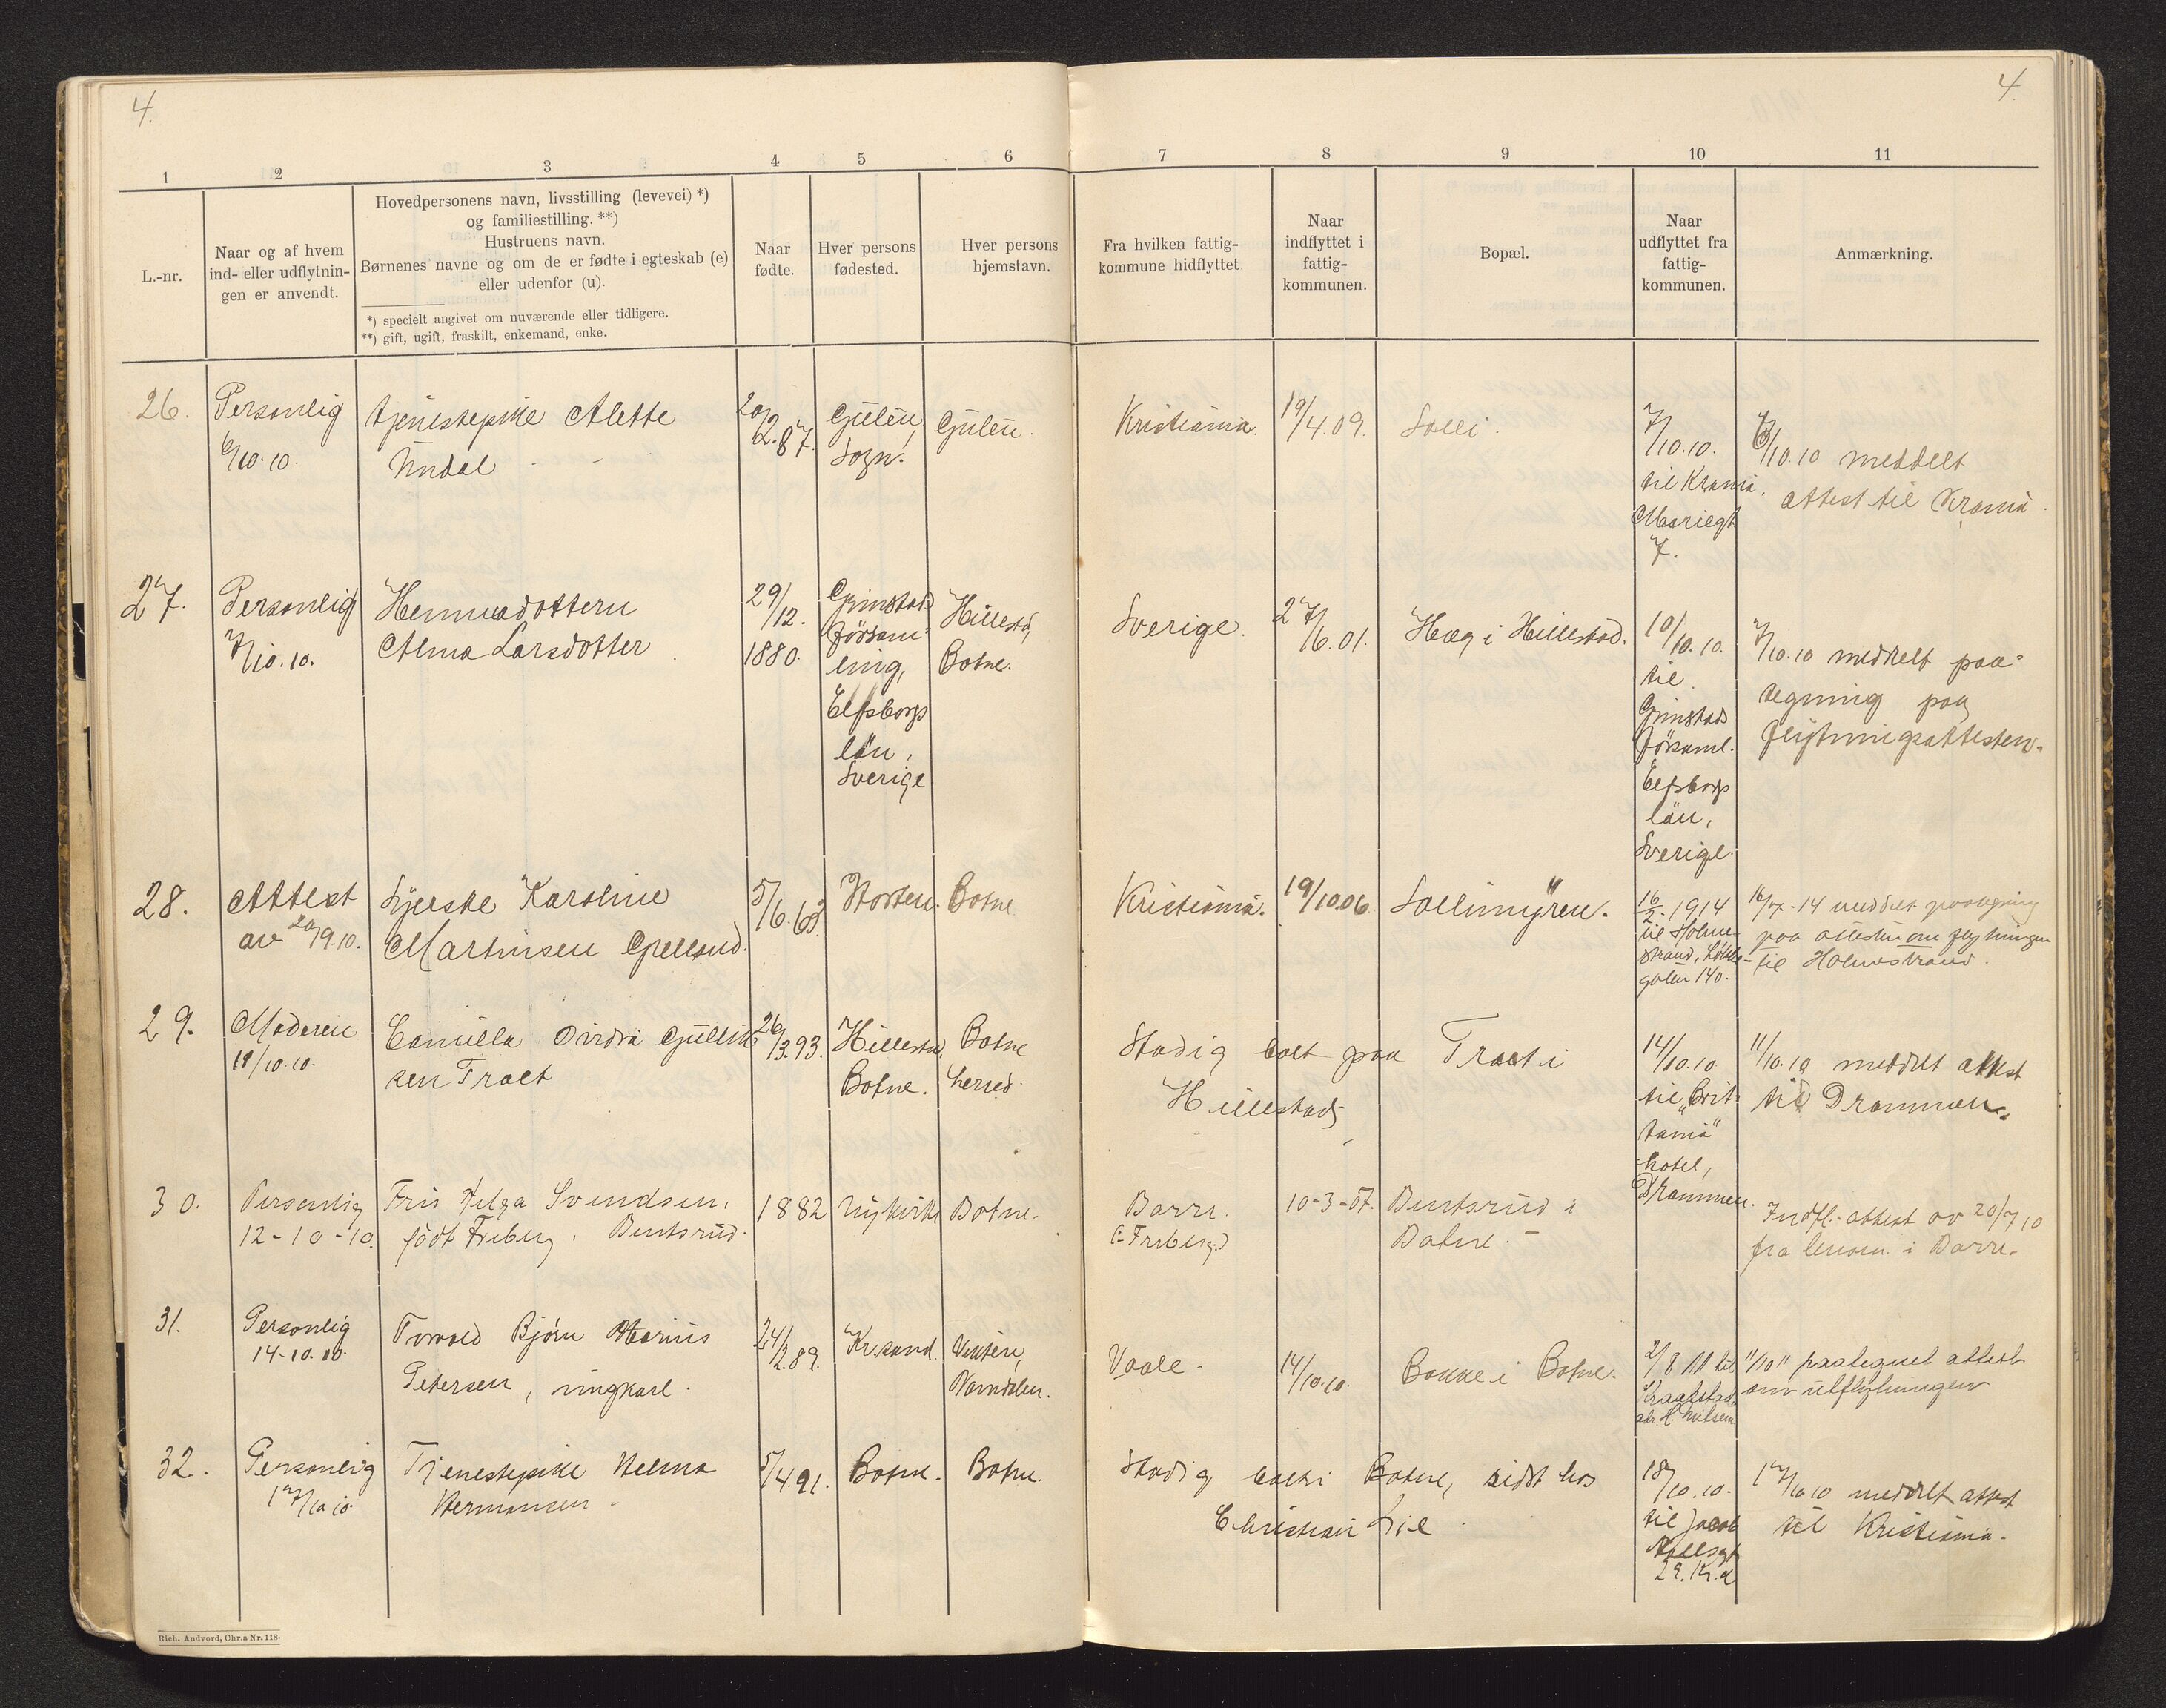 4.
4.
1
2
3
4
5
6
7
8
9
10
11
L.-nr.
Naar og af hvem
ind- eller udflytnin-
gen er anvendt.
Hovedpersonens navn, livsstilling (levevei) *)
og familiestilling. **)
Hustruens navn.
Børnenes navne og om de er fødte i egteskab (e)
eller udenfor (u).
*) specielt angivet om nuværende eller tidligere.
**) gift, ugift, fraskilt, enkemand, enke.
Naar
fødte.
Hver persons
fødested.
Hver persons
hjemstavn.
Fra hvilken fattig-
kommune hidflyttet.
Naar
indflyttet i
fattig-
kommunen.
Bopæl.
Naar
udflyttet fra
fattig-
kommunen.
Anmærkning.
26.
Personlig
6/10.10.
Tjenestepike Alette
Undal
20/2.87.
Gulen,
Sogn.
Gulen.
Kristiania.
19/4.09.
Solli.
7/10.10.
til Krania.
Mariegt
7.
/10.10 meddelt
attest til Krania.
27.
Personlig
7/10.10.
Alma Larsdotter
29/12.
1880.
Grinstad
församl-
ing,
Elfsborgs
län,
Sverige
Hillestad,
Botne.
Sverige.
27/6.01.
Hæg i Hillestad.
10/10.10.
til
Grinstads
församl.
Elfsborgs
län,
Sverige.
7/10.10 meddelt paa-
tegning paa
flytningsattesten.
28.
Attest
av 20/9.10.
Syerske Karoline
Martinsen
5/6.63.
Horten.
Botne
Kristiania.
19/10.06.
Sollimyren.
16/2-1914
til Holme-
strand,
gaten 140.
16/2-14 meddelt paategning
paa attesten om flytningen
til Holmestrand.
29.
Moderen
11/10.10.
Camilla Ovidia Gullik-
sen Traet
26/3.93.
Hillestad,
Botne.
Botne
herred.
Stadig boet paa Traet i
Hillestad
14/10.10
til "Brit-
tania"
hotel,
Drammen.
11/10.10 meddelt attest
til Drammen.
30.
Personlig
12-10-10.
Fru Helga Svendsen,
født Friberg. Bentsrud.
1882
Nykirke
Botne.
Borre.
(: Friberg:)
10-3-07.
Bentsrud i
Botne.
Indfl.-attest av 20/7 10
fra lensm. i Borre.
31.
Personlig
14-10.10.
Torvald Bjørn Marius
Petersen, ungkarl.
24/2.89.
Kr.sand.
Vikten,
Namdalen.
Vaale.
14/10.10.
Bakke i Botne.
2/8 11 til
Kraakstad,
adr. H. Nilsen
"/10" paategnet attest
om utflytningen
32.
Personlig
17/10 10
Tjenestepike Helma
Hermansen.
5/4.91.
Botne.
Botne.
Stadig boet i Botne, sidst hos
Christian Lie
18/10.10.
til Jacob
Aallsgt
29. Kr.a
17/10 10 meddelt attest
til Kristiania.
Rich. Andvord, Chr.a Nr. 118.